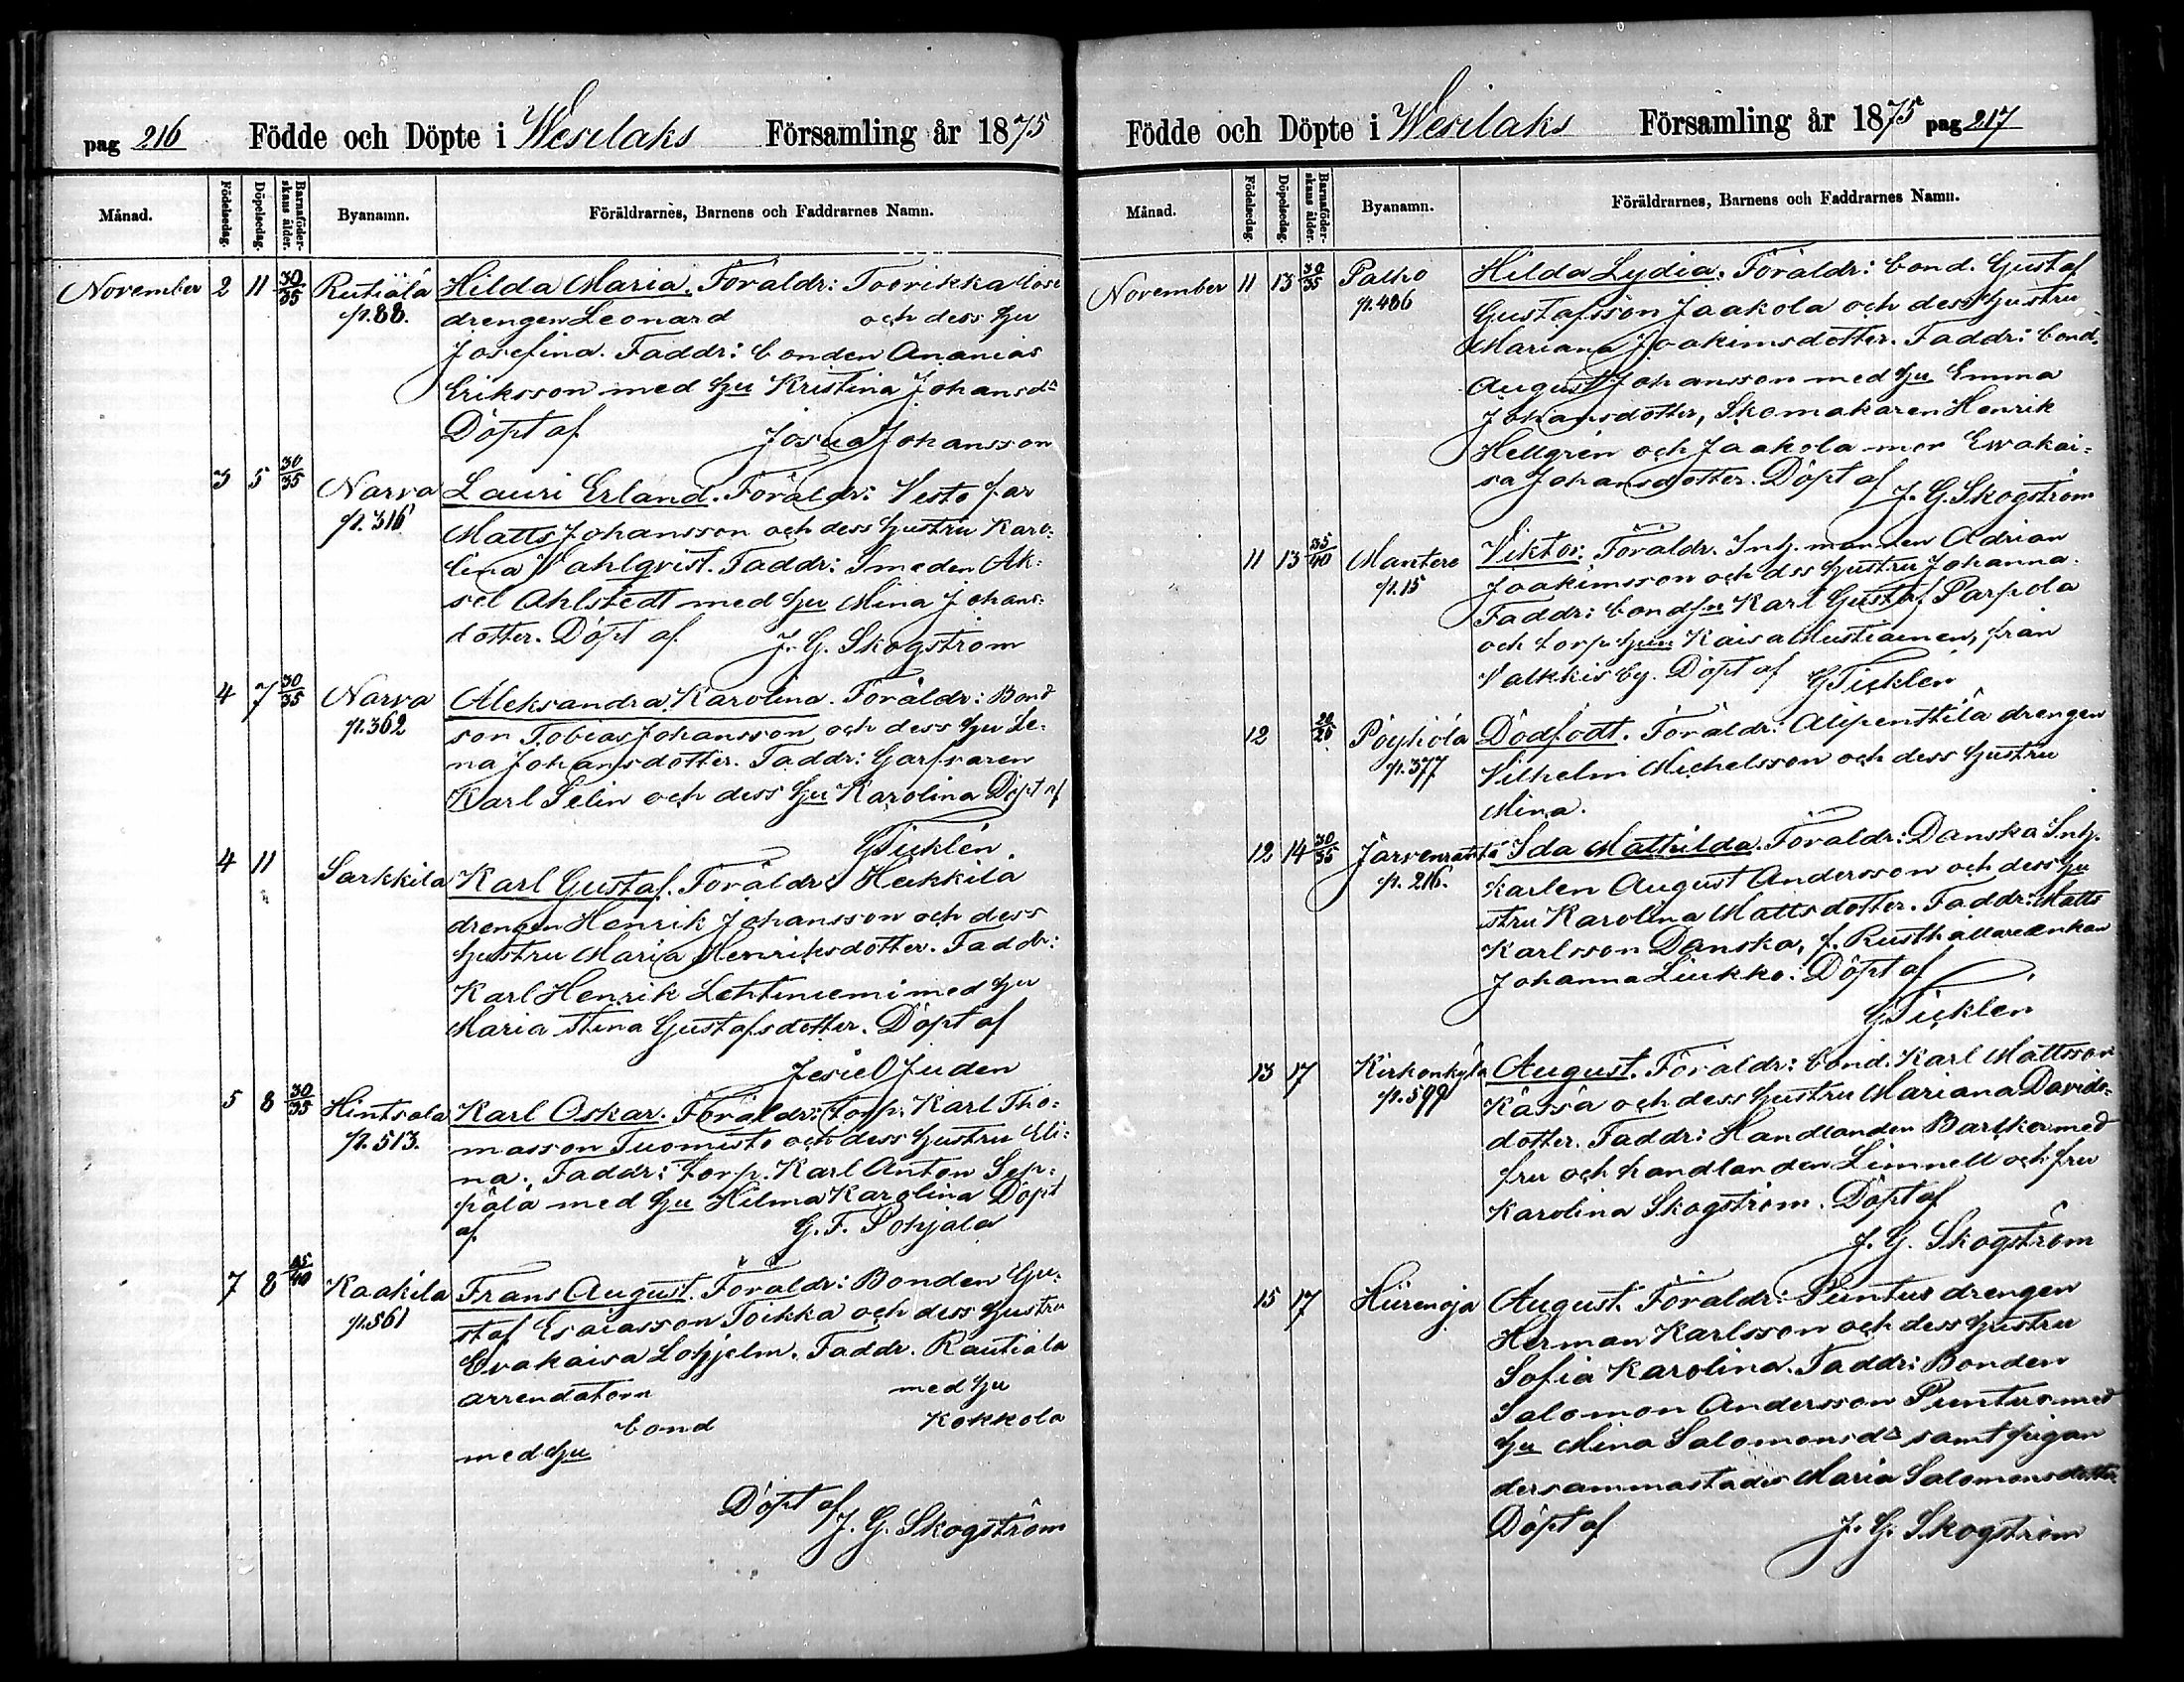 pag 216 Födde och Döpte i Wesilaks Församling år 1875
Månad. Födelsedag. Döpelsedag. Barnaföderskans ålder. Byanamn. Föräldrarnes, Barnens och Faddrarnes Namn.
November 2 11 30/35 Rutiälä Hilda Maria. Föräldr: Toorikka lösa
p. 88. drengen Leonard och dess hu
Josefina. Faddr: bonden Ananias
Eriksson med hu Kristina Johansdr
Döpt af Josua Johansson
3 5 30/35 Narva Lauri Erland. Föräldr: Vesto far
p. 316 Matts Johansson och dess hustru Karo-
lina Wahlqvist. Faddr: Smeden Ak-
sel Ahlstedt med hu Mina Johans-
dotter. Döpt af J. G. Skogström
4 7 30/35 Narva Aleksandra Karolina. Föräldr: Bond
p. 362 son Tobias Johansson och dess hu Le-
na Johansdotter. Faddr: Garfvaren
Karl Selin och dess hu Karolina Döpt af
G Ticklén.
4 11 Sarkkila Karl Gustaf. Föräldr: Heikkilä
drengen Henrik Johansson och dess
hustru Maria Henriksdotter. Faddr:
Karl Henrik Lehtiniemi med hu
Maria Stina Gustafsdotter. Döpt af
Jesiel Juden
5 8 30/35 Hintsala Karl Oskar. Föräldr: torp. Karl Tho-
p. 513. masson Tuomisto och dess hustru Eli-
na. Faddr: torp. Karl Anton Sep-
pälä med hu Hilma Karolina Döpt
af G. F. Pohjala
7 8 35/40 Kaakila Frans August. Föräldr: Bonden Gu-
p. 561 staf Esaiasson Toikka och dess hustru
Evakaisa Lohjelm. Faddr. Rautiala
arrendatorn med hu
bond Kokkola
med hu
Döpt af J. G. Skogström
Födde och Döpte i Wesilaks Församling år 1875 pag 217
Månad. Födelsedag. Döpelsedag. Barnaföderskans ålder. Byanamn. Föräldrarnes, Barnens och Faddrarnes Namn.
November 11 13 30/35 Palho Hilda Lydia. Föräldr: bond. Gustaf
p. 486 Gustafsson Jaakola och dess hustru
Mariana Joakimsdotter. Faddr: bond.
August Johansson med hu Emma
Johansdotter, Skomakaren Henrik
Hellgrén och Jaakola mor Ewakai-
sa Johansdotter. Döpt af J. G. Skogström
11 13 35/40 Mantere Viktor. Föräldr. Inh. mannen Adrian
p. 15 Joakimsson och dess hustru Johanna.
Faddr: bondsn Karl Gustaf Parpola
och torp. hun Kaisa Mustiainen, från
Valkkis by. Döpt af G Ticklen
12 20/25 Pöyhölä Dödfödt. Föräldr: Alipenttilä drengen
p. 377 Vilhelm Michelsson och dess hustru
Mina.
12 14 30/35 Järvenranta Ida Mathilda. Föräldr: Danska Inh.
p. 216. karlen August Andersson och dess hu
stru Karolina Mattsdotter. Faddr: Matts
Karlsson Danska, f. Rusthållareenkan
Johanna Liukko. Döpt af
G Ticklen
13 17 Kirkonkylä August. Föräldr: bond. Karl Mattsson
p. 599 Kässä och dess hustru Mariana Davids-
dotter. Faddr: Handlanden Barlker med
fru och handlanden Limnell och fru
Karolina Skogström. Döpt af
J. G. Skogström
15 17 Hiirenoja August. Föräldr: Puntus drengen
Herman Karlsson och dess hustru
Sofia Karolina. Faddr: Bonden
Salomon Andersson Puntus med
hu Mina Salomonsdr samt pigan
dersammastädes Maria Salomonsdotter
Döpt af J. G. Skogström